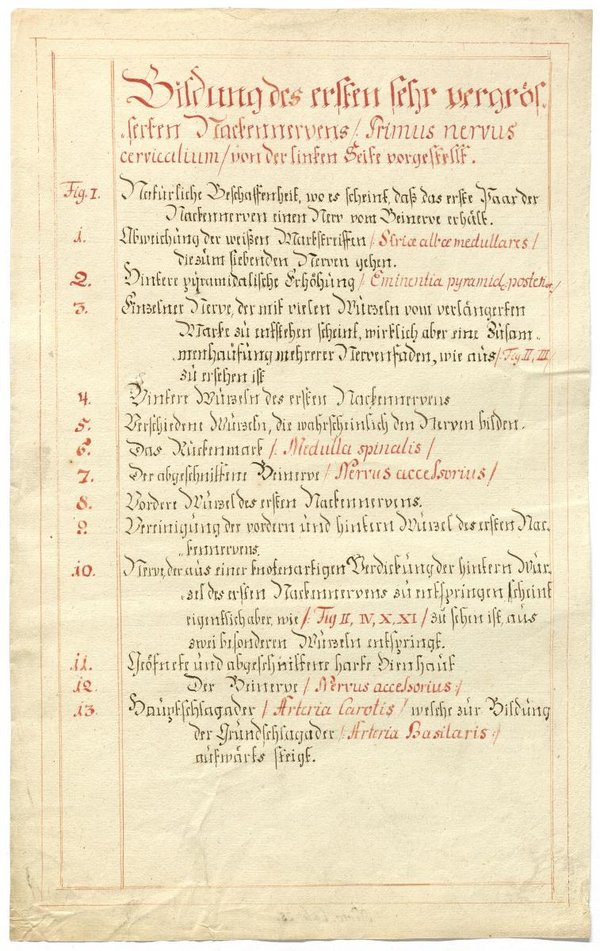 Bildung des ersten sehr vergrös„
„serten Nackennervens /: Primus nervus
cervicalium / von der linken Seite vorgestellt.
Fig. I. Natürliche Beschaffenheit, wo es scheint, daß das erste Paar der
Nackennerven einen Nerv vom Beinerve erhält.
1. Abweichung der weißen Markstreiffen /: Striæ albæ medullares /
die zum siebenden Nerven gehen.
2. Hintere pÿramidalische Erhöhung /: Eminentia pyramid: poster: /
3. Einzelner Nerve, der mit vielen Würzeln vom verlängerten
Marke zu entstehen scheint, wirklich aber eine Zusam„
„menhaufung mehrerer Nervenfäden, wie aus /: Fig II, III /
zu ersehen ist
4. Hintere Würzeln des ersten Nackennervens
5. Verschiedene Würzeln, die wahrscheinlich den Nerven bilden.
6. Das Rückenmark /: Medulla spinalis /
7. Der abgeschnittene Beinerve / Nervus accessorius /
8. Vordere Würzel des ersten Nackennervens.
9. Vereinigung der vordern und hintern Würzel des ersten Nac„
„kennervens.
10. Nerve, der aus einer knotenartigen Verdickung der hintern Wür„
„zel des ersten Nackennervens zu entspringen scheint
eigentlich aber, wie /: Fig II, IV, X, XI / zu sehen ist, aus
zwei besonderen Würzeln entspringt.
11. Geöfnete und abgeschnittene harte Hirnhaut
12. Der Beinerve / Nervus accessorius :/
13. Hauptschlagader / Arteria Carotis / welche zur Bildung
der Grundschlagader /: Arteria Basilaris :/
aufwärts steigt.